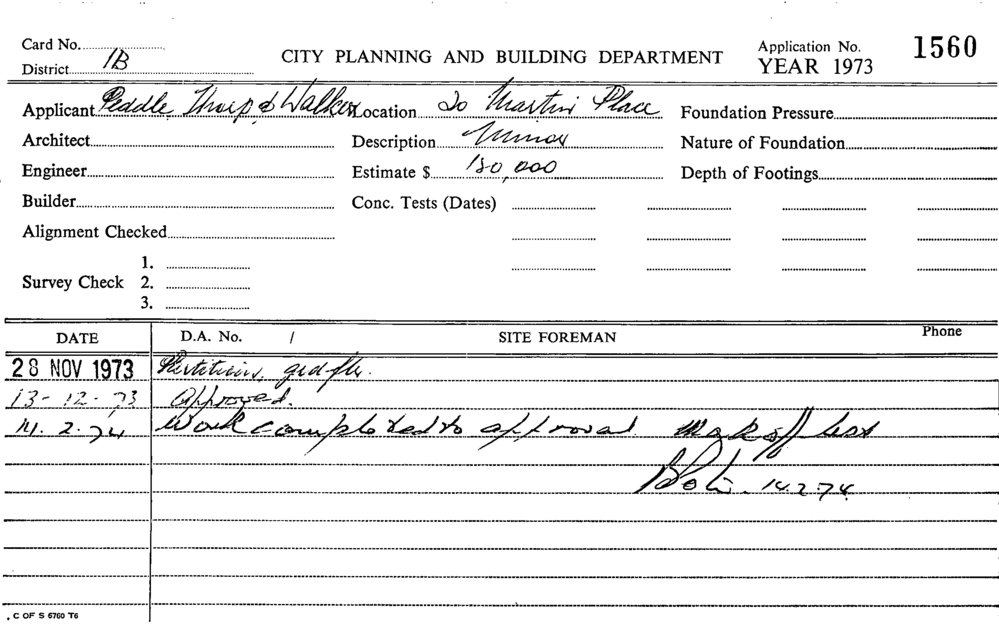 Card No.
District 1B
CITY PLANNING AND BUILDING DEPARTMENT
Application No. 1560
YEAR 1973
Applicant Peddle Thorp & Walker Location 20 Martin Place Foundation Pressure
Architect Description Minor Nature of Foundation
Engineer Estimate $ 180,000 Depth of Footings
Builder Conc. Tests (Dates)
Alignment Checked
1.
Survey Check 2.
3.
DATE D.A. No. / SITE FOREMAN Phone
28 NOV 1973 Partitions, grd flr.
13-12-73 Approved.
14.2.74 Work completed to approval Mark off list
14.2.74
C OF S 6760 T6